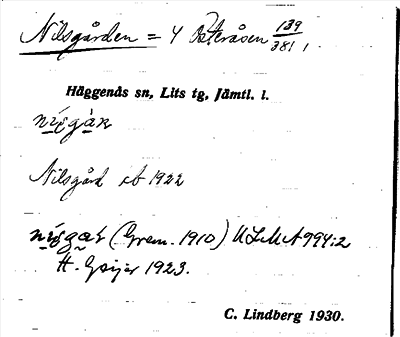 Nilsgården = 4 Österåsen 139/381,
Häggenås sn, Lits tg, Jämtl. l.
Nilsgård 1922
(Grem. 1910) ULMA 994:2
H. Geijer 1923.
C. Lindberg 1930.